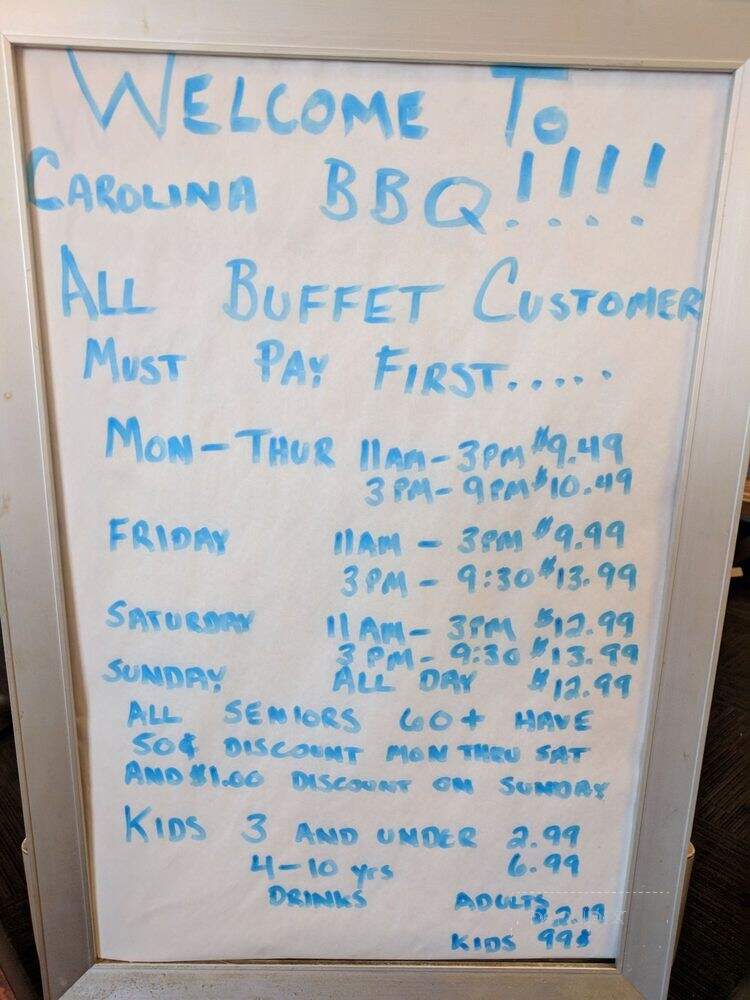 WELCOME TO
CAROLINA BBQ!!!!
ALL BUFFET CUSTOMER
MUST PAY FIRST.....
MON-THUR 11AM-3PM $9.49
3PM-9PM $10.49
FRIDAY 11AM - 3PM $9.99
3PM - 9:30 $13.99
SATURDAY 11AM - 3PM $12.99
3PM - 9:30 $13.99
SUNDAY ALL DAY $12.99
ALL SENIORS 60+ HAVE
50¢ DISCOUNT MON THRU SAT
AND $1.00 DISCOUNT ON SUNDAY
KIDS 3 AND UNDER 2.99
4-10 yrs 6.99
DRINKS ADULTS
$2.19
KIDS 99¢